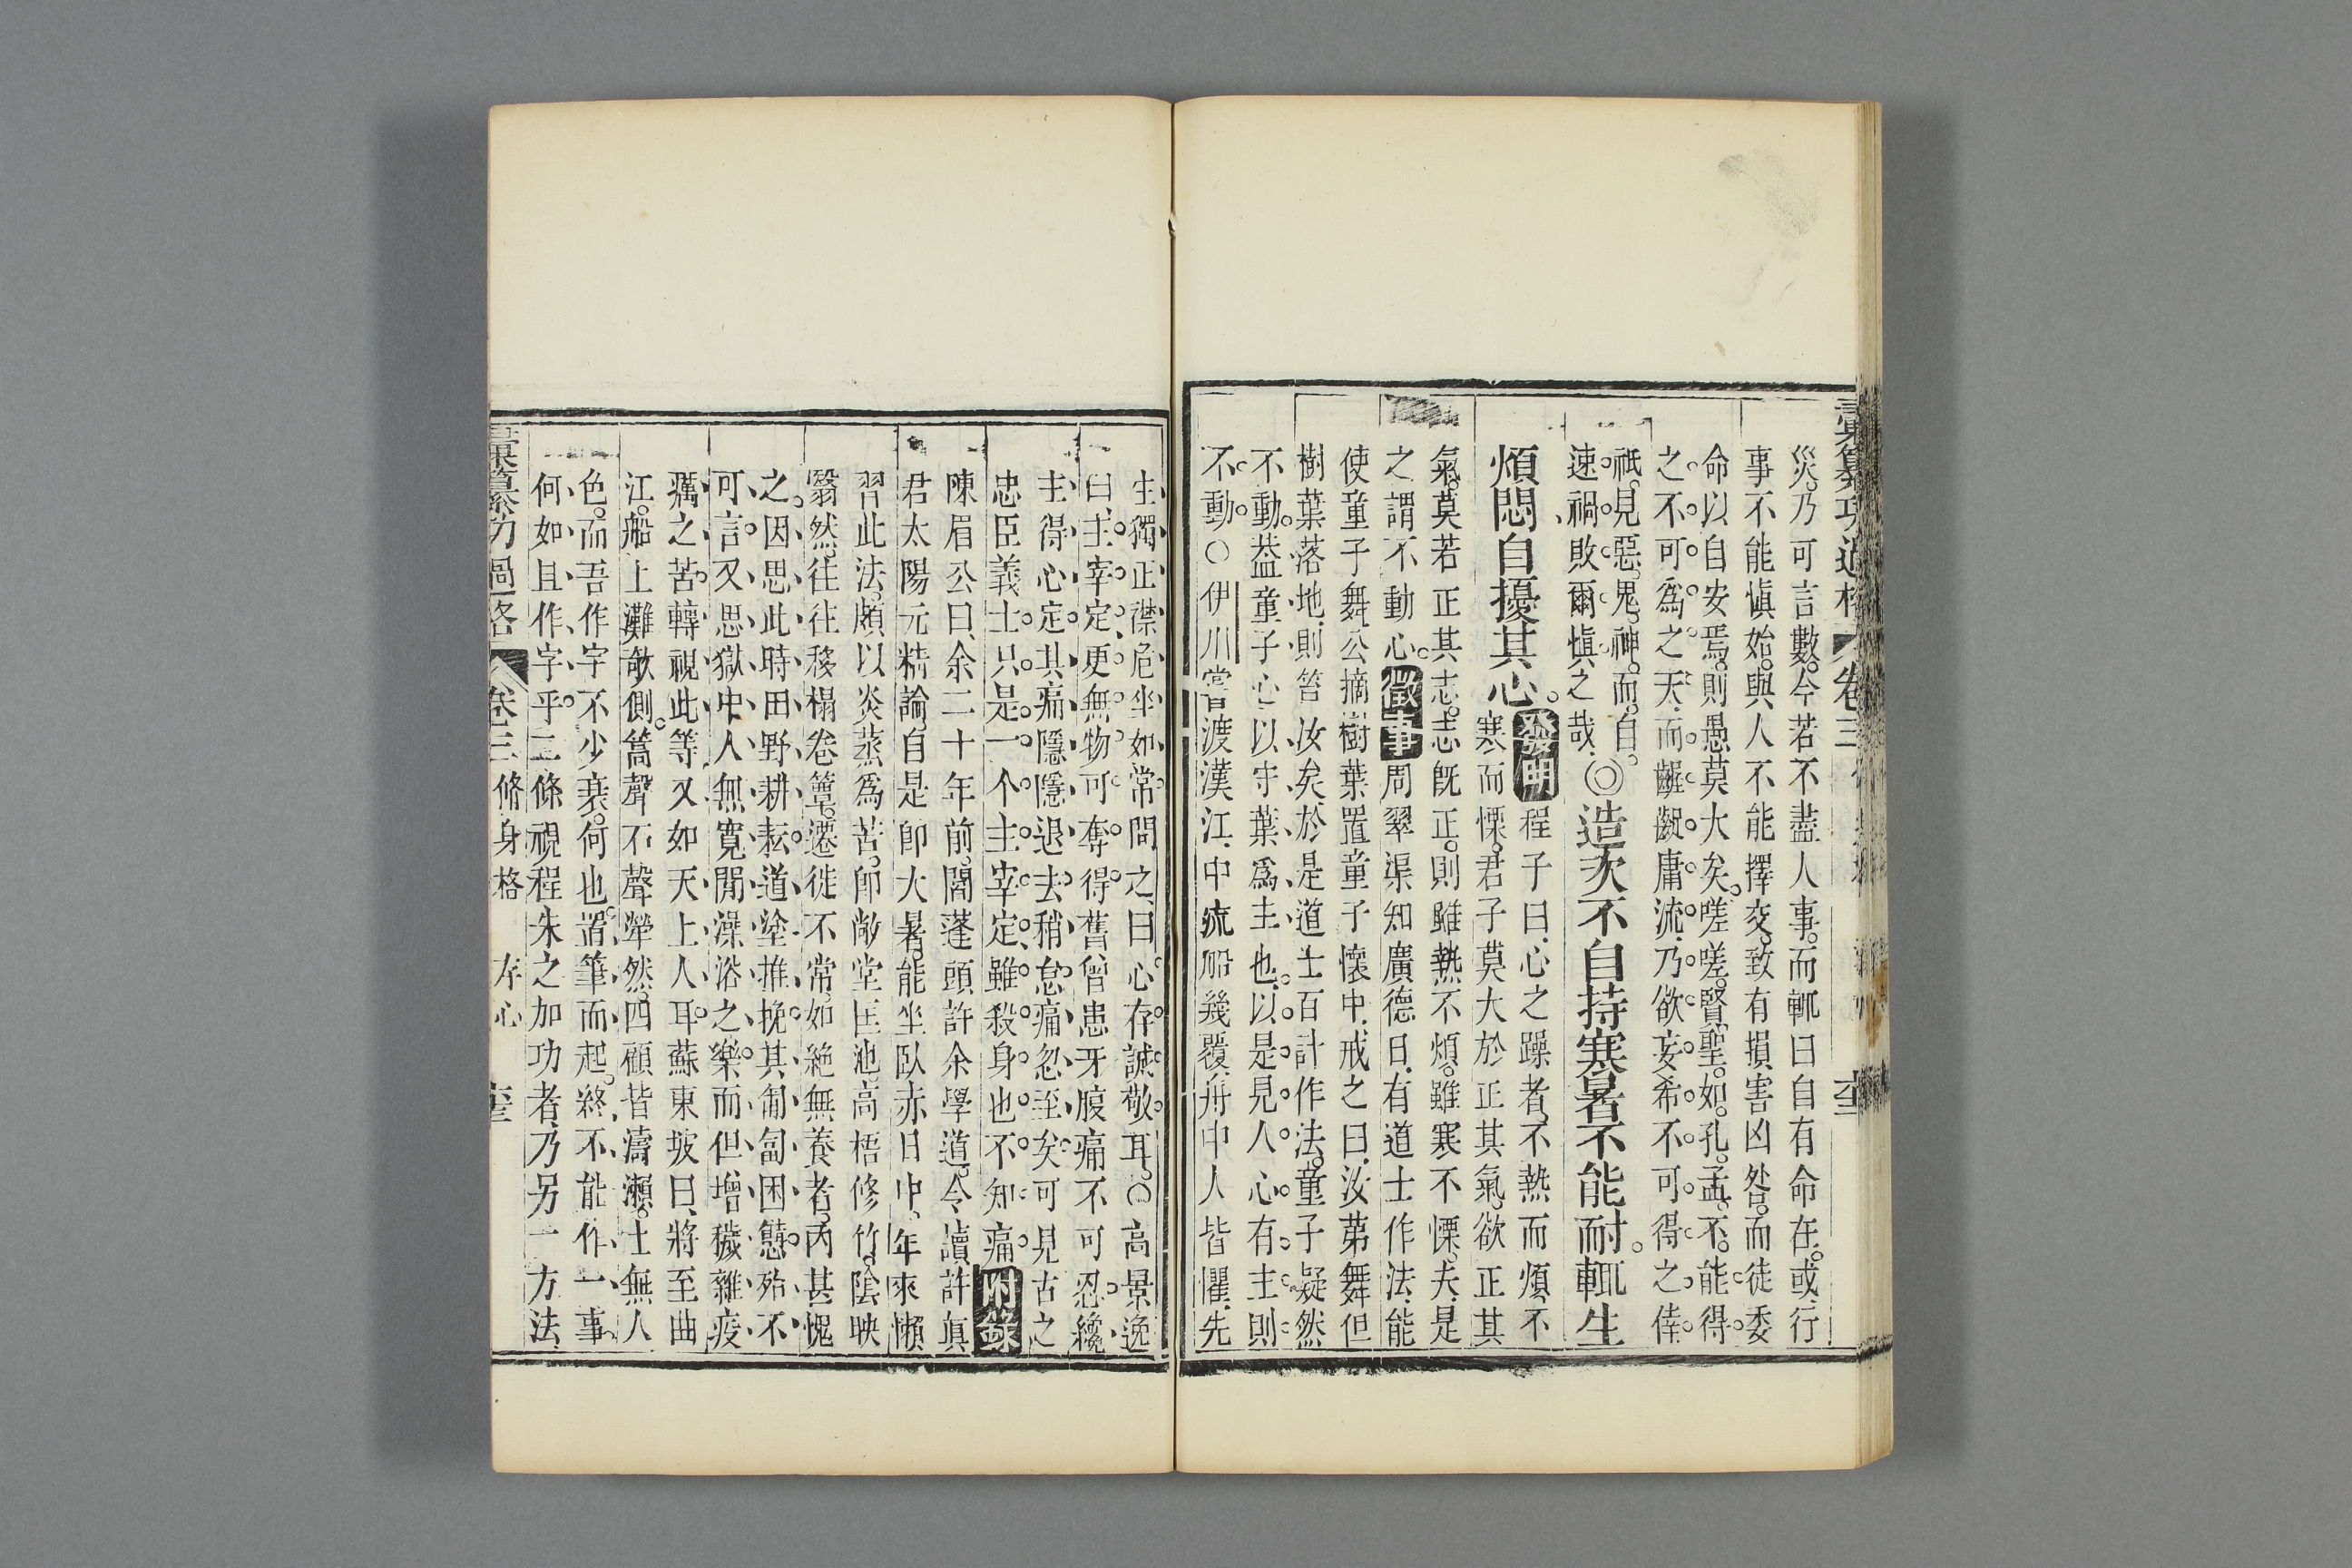 彙纂功過格 卷三
災乃可言數今若不盡人事而輒曰自有命在或行
事不能愼始與人不能擇交致有損害凶咎而徒委
命以自安焉則愚莫大矣嗟嗟賢聖如孔孟不能得
之不可爲之天而齷齪庸流乃欲妄希不可得之倖
祇見惡鬼神而自
速禍敗爾愼之哉◎造次不自持寒暑不能耐輒生
煩悶自擾其心 發明 程子曰心之躁者不熱而煩不
寒而慄君子莫大於正其氣欲正其
氣莫若正其志志旣正則雖熱不煩雖寒不慄夫是
之謂不動心 徵事 周翠渠知廣德日有道士作法能
使童子舞公摘樹葉置童子懷中戒之曰汝苐舞但
樹葉落地則笞汝矣於是道士百計作法童子疑然
不動葢童子心以守葉爲主也以是見人心有主則
不動○伊川嘗渡漢江中流船幾覆舟中人皆懼先
生獨正襟危坐如常問之曰心存誠敬耳○高景逸
曰主宰定更無物可奪得舊曾患牙腹痛不可忍纔
主得心定其痛隱隱退去稍怠痛忽至矣可見古之
忠臣義士只是一个主宰定雖殺身也不知痛 附錄
陳眉公曰余二十年前閣蓬頭許余學道今讀許眞
君太陽元精論自是卽大暑能坐臥赤日中年來懶
習此法頗以炎蒸爲苦卽敞堂匡池高梧修竹陰映
翳然往往移榻卷簟遷徙不常如絶無養者丙甚愧
之因思此時田野耕耘道塗推挽其匍匐困憊殆不
可言又思獄中人無寬閒澡浴之樂而但增穢雜疫
癘之苦轉視此等又如天上人耳蘇東坡曰將至曲
江船上灘欹側篙聲石聲犖然四顧皆濤瀨士無人
色而吾作字不少衰何也置筆而起終不能作一事
何如且作字乎二條視程朱之加功者乃另一方法
彙纂功過格 卷三 脩身格 存心